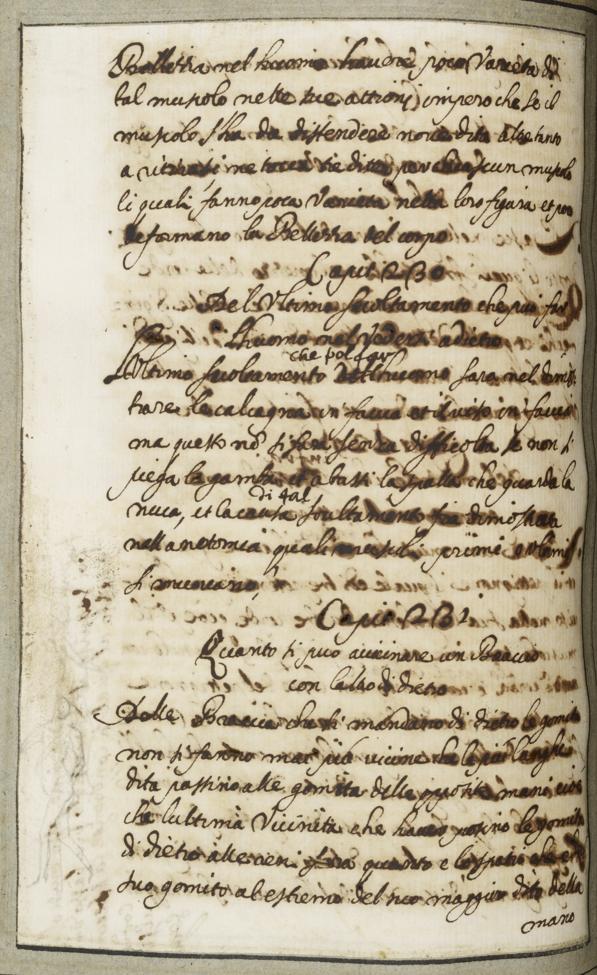 Bellezza nel huomo haverà poca varietà di
tal muscolo nelle sue attioni imperoche se il
muscolo s'ha da distendere nove dita altretanto
a me tocca tre dita per ciascun muscolo
li quali fanno poca varietà nella loro figura et poco
deformano la Bellezza del corpo
Capit 230
Del Ultimo svoltamento che può far
L'huomo nel vedersi adietro
che pol far
L'Ultimo svoltamento l'huomo sara nel dimos
trare le calcagna in faccia et il viso in faccia
ma questo nō si farà senza difficolta se non si
piega la gamba et abassi la spalla che guarda la
di tal
nuca, et la causa svoltamento fia dimostrata
nella notomia quali muscoli primi e ultimi
si muovano,
Capit 231
Quanto si può avicinare un Braccio
con l'altro di dietro
Delle Braccia che si mandano di dietro le gomita
non si fanno mai più vicine che le più lunghe
dita passino alle gomita delle opposite mani cioè
che l'ultima vicinità che haver possino le gomita
di dietro alle reni fara quanto e lo spatio che è
suo gomito al estremo del suo maggior dito della
mano